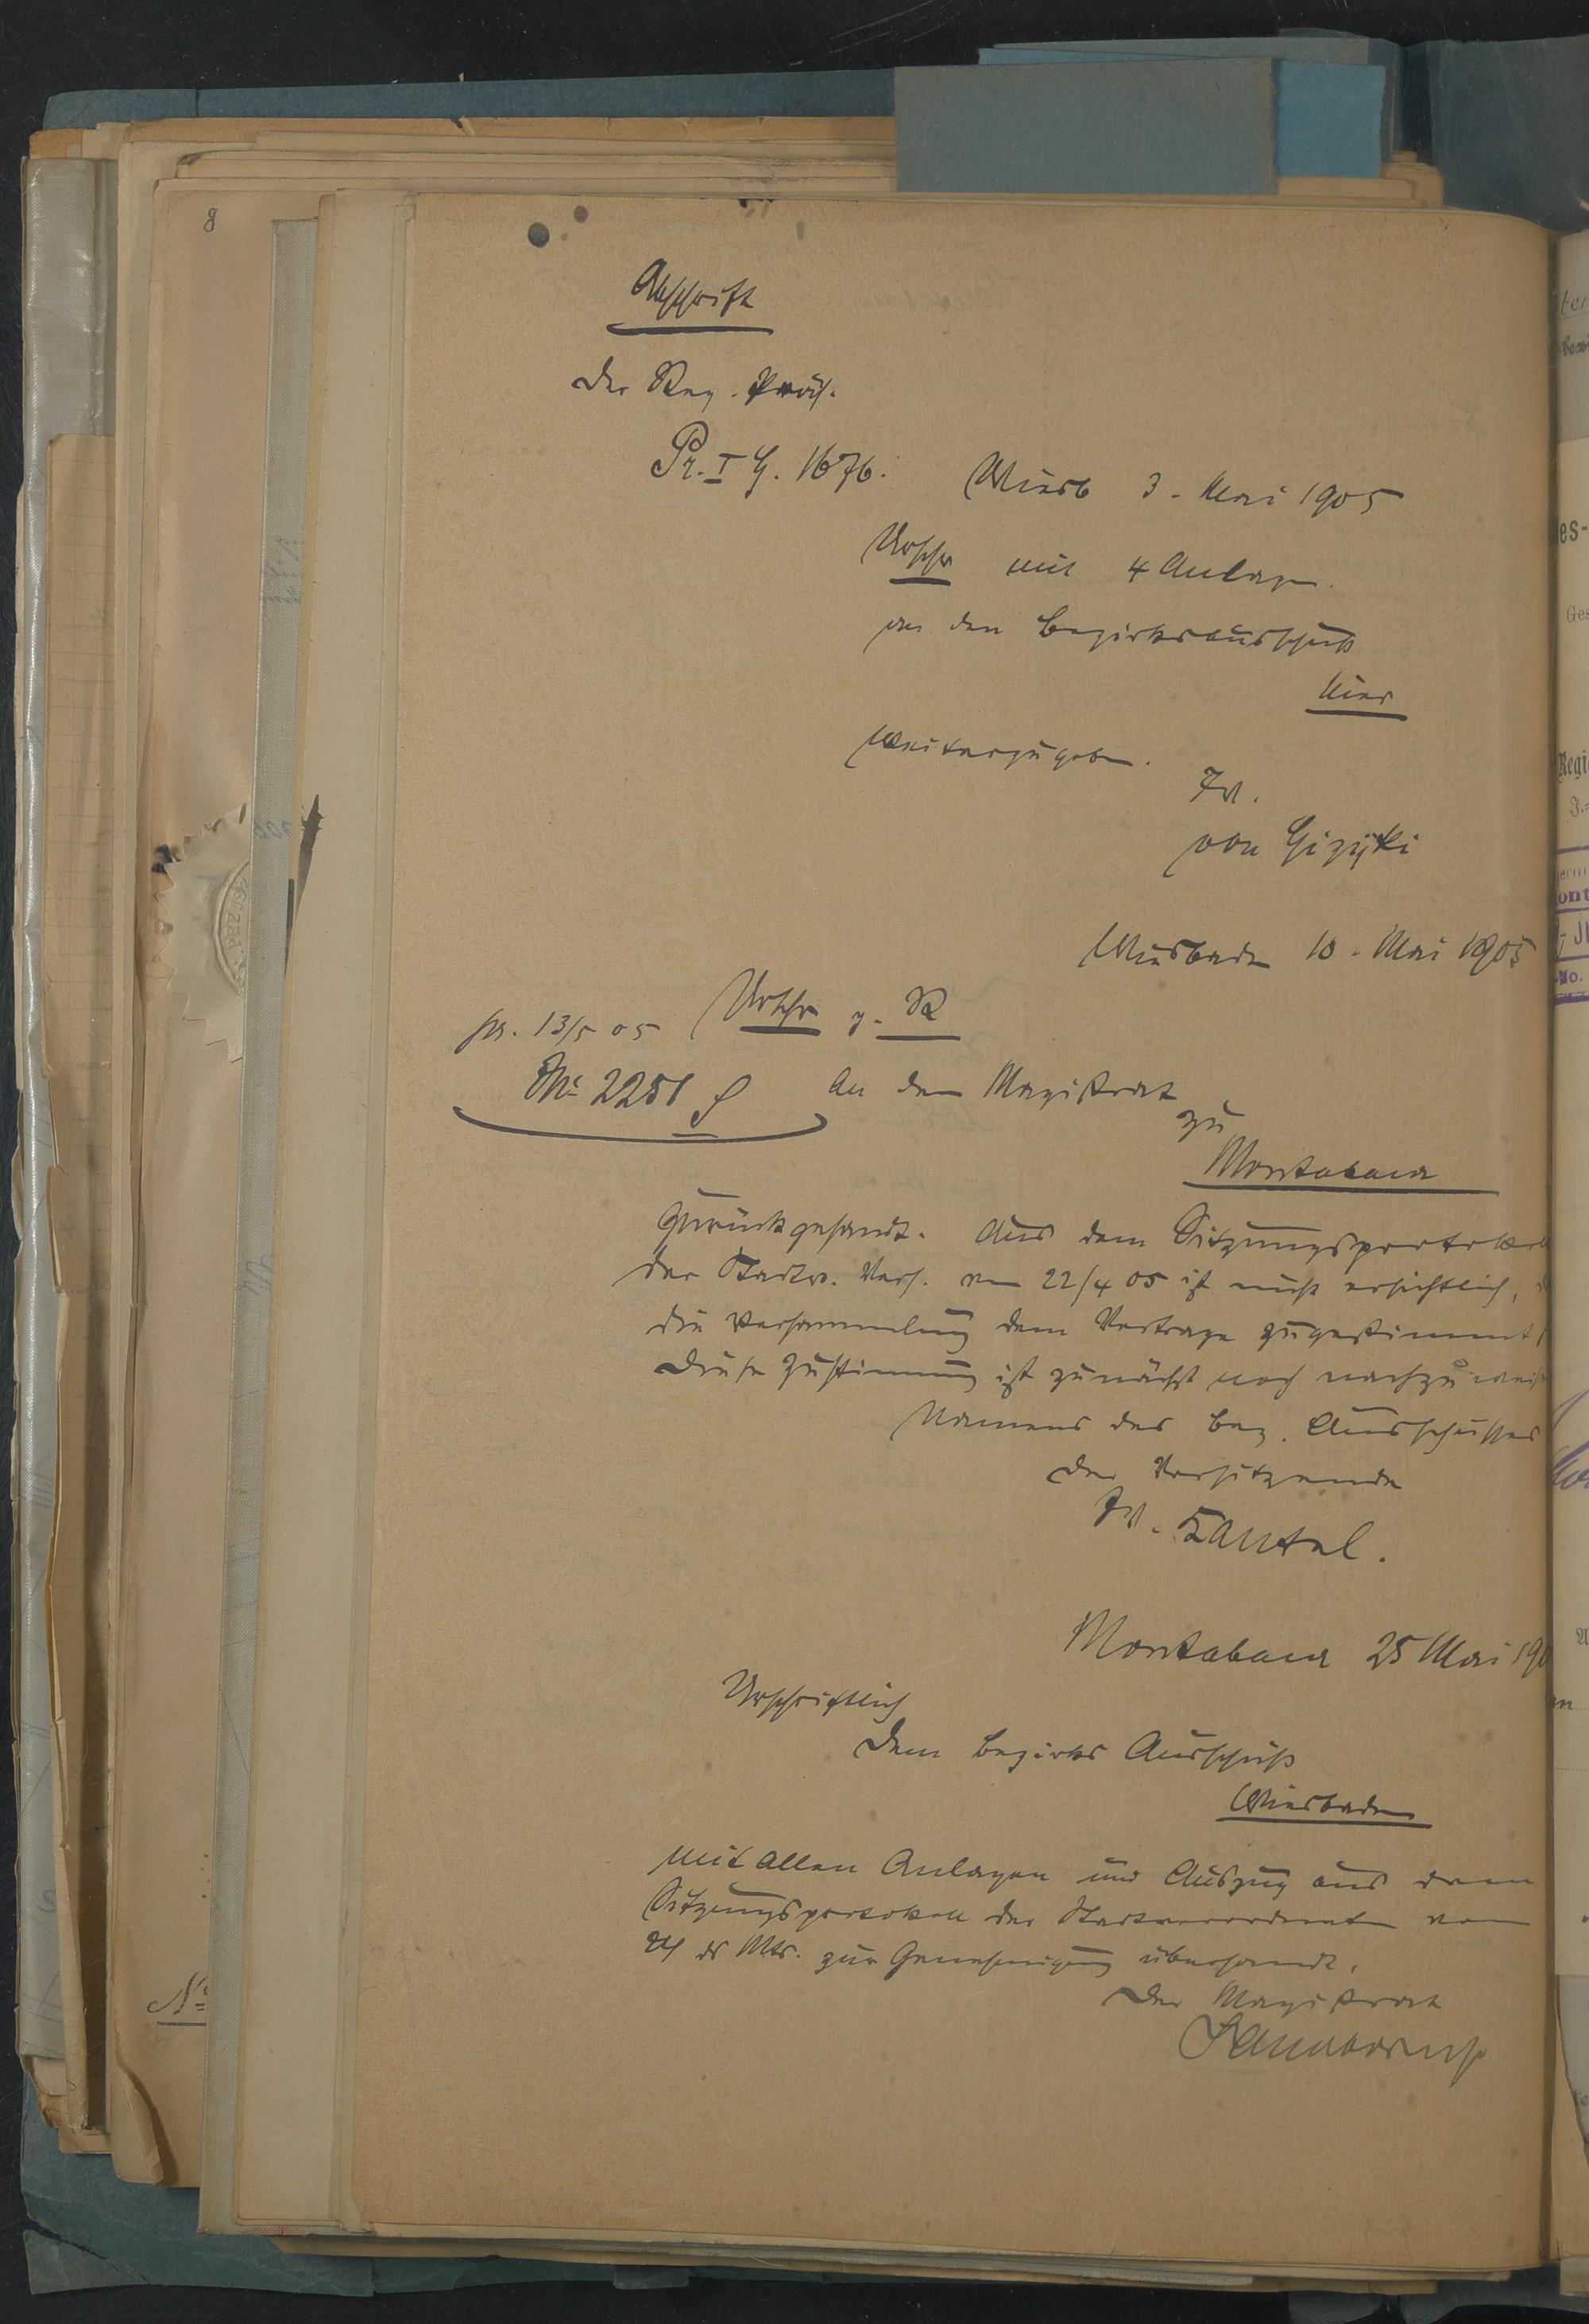 8
Abschrift
Der Reg. Präs.
Pr. I G. 1676. Wiesb 3. Mai 1905
Urschr mit 4 Anlagen
an den Bezirksausschuß
hier
weiterzugeben.
IV.
von Gizycki
Wiesbaden 10. Mai 1905
pr. 13/5 05 Urschr g. R
№ 2251 An den Magistrat
zu
Montabaur
zurückgesandt. Aus dem Sitzungsprotokoll
der Stadtv. Vers. vom 22/4 05 ist nicht ersichtlich, d
die Versammlung dem Vertrage zugestimmt
Diese Zustimmung ist zunächst noch nachzuweis
Namens des Bez. Ausschusses
Der Vorsitzende
IV. Kantel.
Montabaur 25 Mai 190
Urschriftlich
Dem Bezirks Ausschuß
Wiesbaden
mit allen Anlagen und Auszug aus dem
Sitzungsprotokoll der Stadtverordneten vom
24 ds Mts. zur Genehmigung übersandt.
Der Magistrat
№